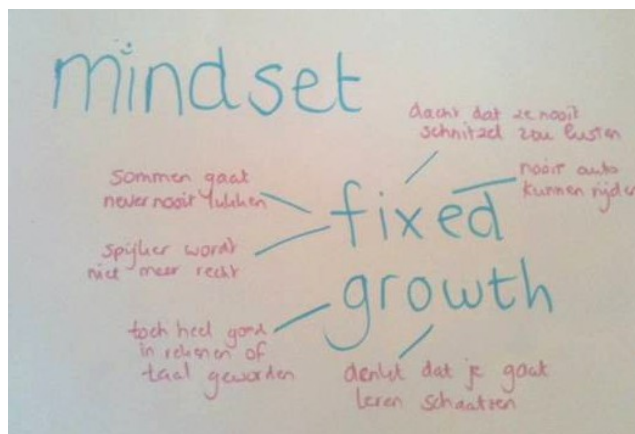 mindset
dacht dat ze nooit
schnitzel zou lusten
nooit auto
kunnen rijden
sommen gaat
never nooit lukken
fixed
spijker wordt
niet meer recht
growth
toch heel goed
in rekenen of
taal geworden
denkt dat je gaat
leren schaatsen